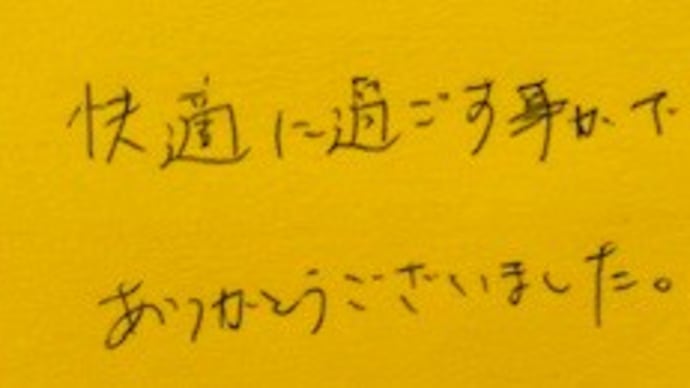 快適に過ごす事がで
ありがとうございました。